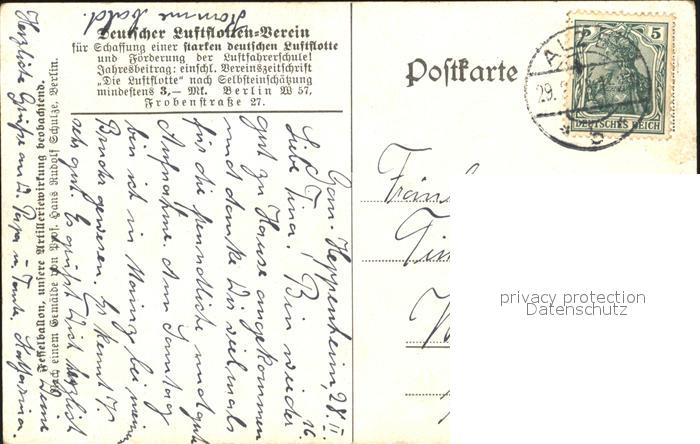 Deutscher Luftflotten-Verein
für Schaffung einer starken deutschen Luftflotte
und Förderung der Luftfahrerschule!
Jahresbeitrag: einschl. Vereinszeitschrift
„Die Luftflotte“ nach Selbsteinschätzung
mindestens 3,— Mk. Berlin W 57,
Frobenstraße 27.
Postkarte
5 5
DEUTSCHES REICH
29.
Fesselballon, unsere Artilleriewirkung beobachtend.
Nach einem Gemälde von Prof. Hans Rudolf Schulze, Berlin.
Gau. Heppenheim, 28. II. 16.
Liebe Tina! Bin wieder
gut zu Hause angekommen
und danke Dir vielmals
für die freundliche und gute
Aufnahme. Am Sonntag
bin ich in Mainz bei mein
Bruder gewesen. Es
sehr gut. Es grüßt Dich herzlich
Deine
Katharina.
Herzliche Grüße an D. Papa u. Tante
Komme bald.
privacy protection
Datenschutz